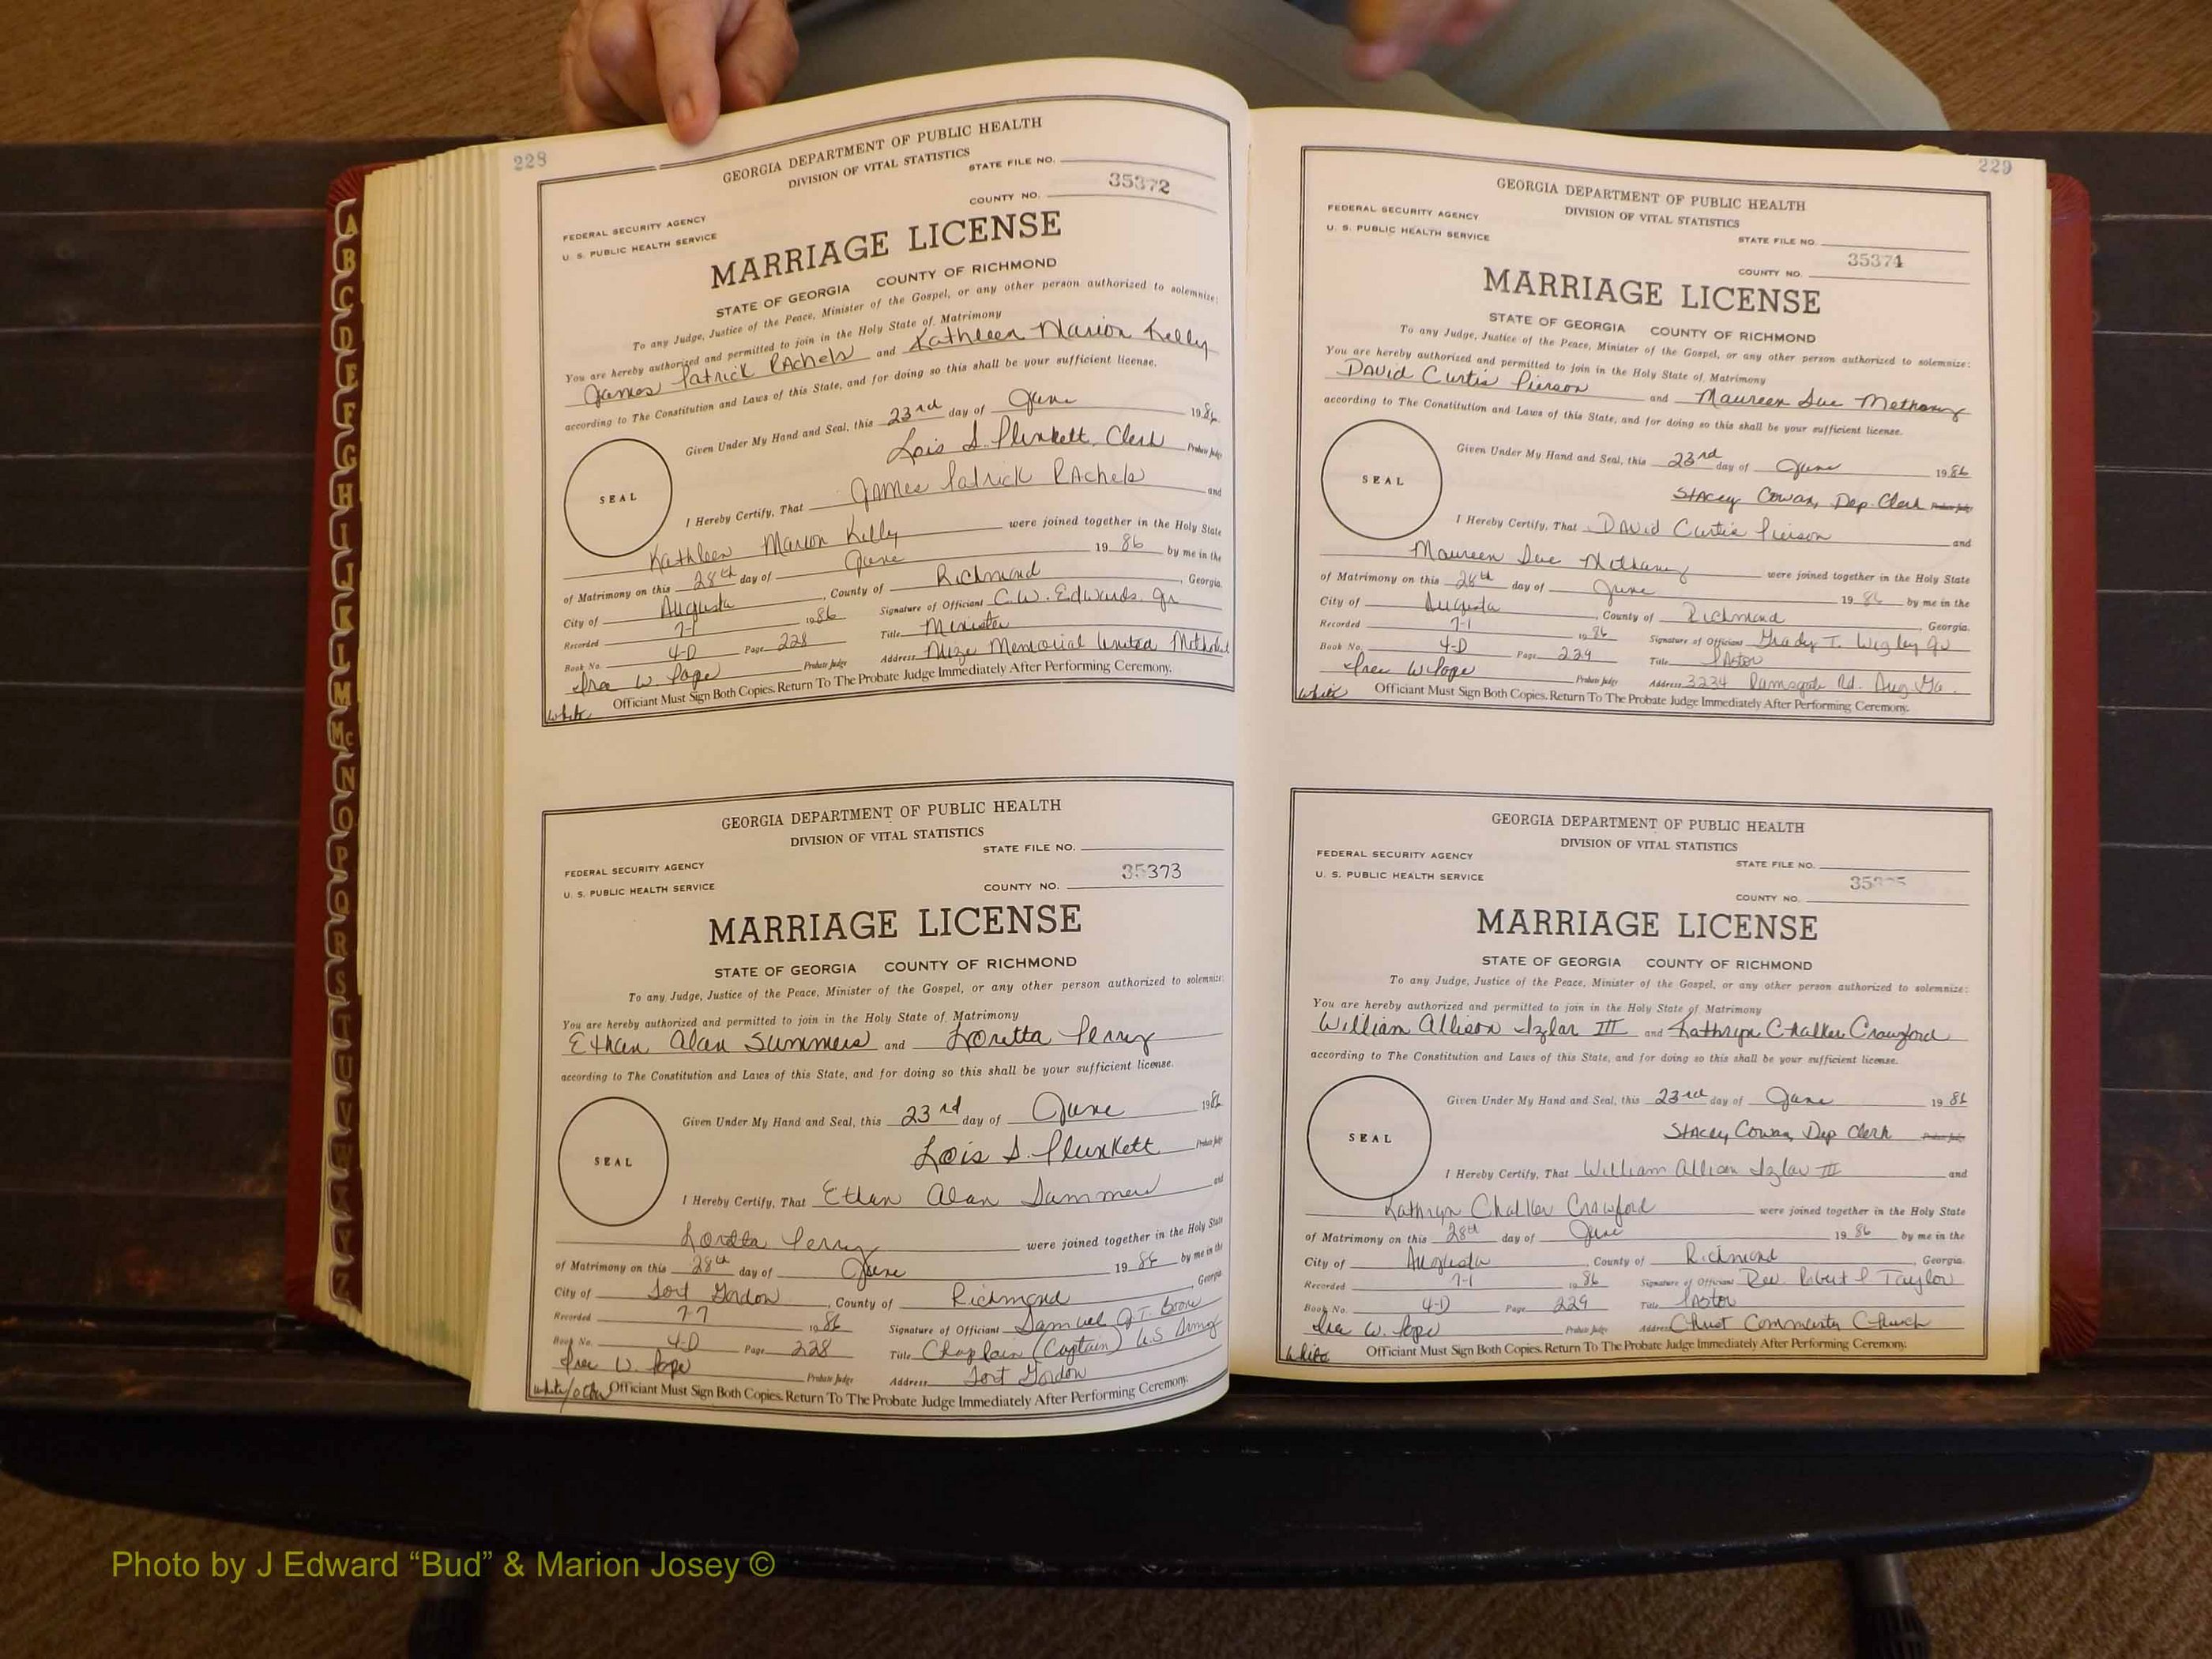 228
GEORGIA DEPARTMENT OF PUBLIC HEALTH
DIVISION OF VITAL STATISTICS
STATE FILE NO.
35372
FEDERAL SECURITY AGENCY
COUNTY NO.
U. S. PUBLIC HEALTH SERVICE
MARRIAGE LICENSE
STATE OF GEORGIA COUNTY OF RICHMOND
To any Judge, Justice of the Peace, Minister of the Gospel, or any other person authorized to solemnize:
You are hereby authorized and permitted to join in the Holy State of Matrimony
James Patrick RAchels and Kathleen Marion Kelly
according to The Constitution and Laws of this State, and for doing so this shall be your sufficient license.
Given Under My Hand and Seal, this 23rd day of June 1986
Lois S. Plunkett, Clerk Probate Judge
SEAL
I Hereby Certify, That James Patrick RAchels and
Kathleen Marion Kelly were joined together in the Holy State
of Matrimony on this 28th day of June 19 86 by me in the
City of Augusta, County of Richmond, Georgia.
Recorded 7-1 1986 Signature of Officiant C.W. Edwards Jr
Book No. 4-D Page 228 Title Minister
Ira W. Pope Probate Judge Address Mize Memorial United Methodist
Officiant Must Sign Both Copies. Return To The Probate Judge Immediately After Performing Ceremony.
White
GEORGIA DEPARTMENT OF PUBLIC HEALTH
DIVISION OF VITAL STATISTICS
STATE FILE NO.
FEDERAL SECURITY AGENCY
35373
U. S. PUBLIC HEALTH SERVICE
COUNTY NO.
MARRIAGE LICENSE
STATE OF GEORGIA COUNTY OF RICHMOND
To any Judge, Justice of the Peace, Minister of the Gospel, or any other person authorized to solemnize:
You are hereby authorized and permitted to join in the Holy State of Matrimony
Ethan Alan Summers and Loretta Perry
according to The Constitution and Laws of this State, and for doing so this shall be your sufficient license.
Given Under My Hand and Seal, this 23rd day of June 1986
Lois S. Plunkett Probate Judge
SEAL
I Hereby Certify, That Ethan Alan Summers and
Loretta Perry were joined together in the Holy State
of Matrimony on this 28th day of June 19 86 by me in the
City of Fort Gordon, County of Richmond Georgia
Recorded 7-7 1986 Signature of Officiant Samuel J.T. Boone
Book No. 4-D Page 228 Title Chaplain (Captain) U.S Army
Ira W. Pope Probate Judge Address Fort Gordon
White/other Officiant Must Sign Both Copies. Return To The Probate Judge Immediately After Performing Ceremony.
229
GEORGIA DEPARTMENT OF PUBLIC HEALTH
DIVISION OF VITAL STATISTICS
FEDERAL SECURITY AGENCY
U. S. PUBLIC HEALTH SERVICE
STATE FILE NO.
35374
COUNTY NO.
MARRIAGE LICENSE
STATE OF GEORGIA COUNTY OF RICHMOND
To any Judge, Justice of the Peace, Minister of the Gospel, or any other person authorized to solemnize:
You are hereby authorized and permitted to join in the Holy State of Matrimony
DAvid Curtis Pierson and Maureen Sue Metheny
according to The Constitution and Laws of this State, and for doing so this shall be your sufficient license.
Given Under My Hand and Seal, this 23rd day of June 1986
STAcey Cowan, Dep. Clerk Probate Judge
SEAL
I Hereby Certify, That DAvid Curtis Pierson and
Maureen Sue Metheny were joined together in the Holy State
of Matrimony on this 28th day of June 19 86 by me in the
City of Augusta, County of Richmond Georgia.
Recorded 7-1 1986 Signature of Officiant Grady T. Wigley Jr
Book No. 4-D Page 229 Title PAstor
Ira W. Pope Probate Judge Address 3234 Ramsgate Rd. Aug. Ga.
White Officiant Must Sign Both Copies. Return To The Probate Judge Immediately After Performing Ceremony.
GEORGIA DEPARTMENT OF PUBLIC HEALTH
DIVISION OF VITAL STATISTICS
FEDERAL SECURITY AGENCY
STATE FILE NO.
U. S. PUBLIC HEALTH SERVICE
COUNTY NO.
MARRIAGE LICENSE
STATE OF GEORGIA COUNTY OF RICHMOND
To any Judge, Justice of the Peace, Minister of the Gospel, or any other person authorized to solemnize:
You are hereby authorized and permitted to join in the Holy State of Matrimony
William Allison Izlar III and Kathryn Chalker Crawford
according to The Constitution and Laws of this State, and for doing so this shall be your sufficient license.
Given Under My Hand and Seal, this 23rd day of June 1986
STAcey Cowan, Dep Clerk Probate Judge
SEAL
I Hereby Certify, That William Allison Izlar III and
Kathryn Chalker Crawford were joined together in the Holy State
of Matrimony on this 28th day of June 19 86 by me in the
City of Augusta, County of Richmond Georgia.
Recorded 7-1 1986 Signature of Officiant Rev. Robert P Taylor
Book No. 4-D Page 229 Title PAstor
Ira W. Pope Probate Judge Address Christ Community Church
White Officiant Must Sign Both Copies. Return To The Probate Judge Immediately After Performing Ceremony.
A
B
C
D
E
F
G
H
I
J
K
L
M
Mc
N
O
P
Q
R
S
T
U
V
W
X
Y
Z
Photo by J Edward “Bud” & Marion Josey ©